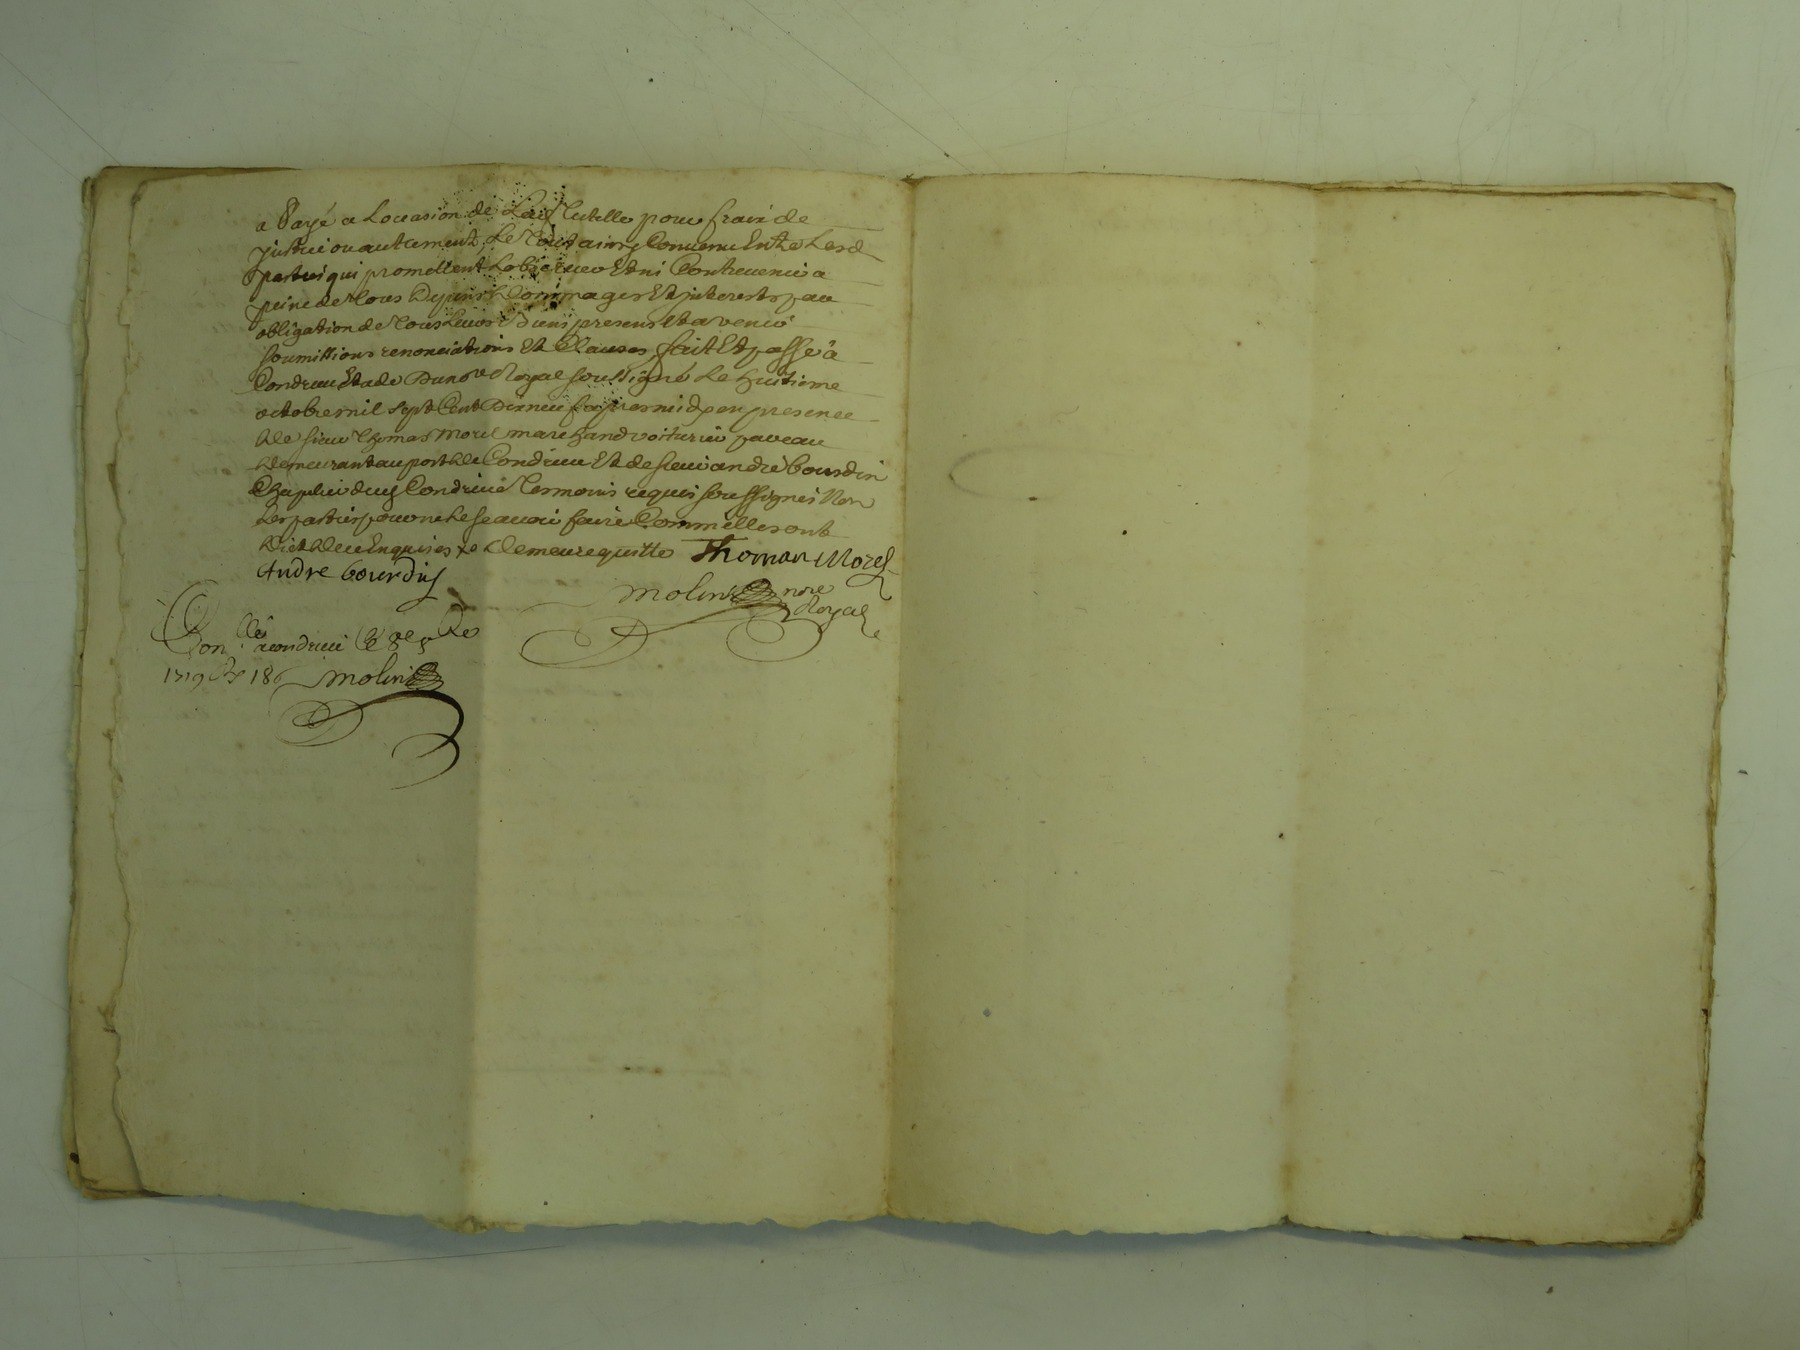 a Payé a Loccasion de Lad tutelle pour frais de
justice ou autrement, Le tout ainsy Convenu Entre Lesd
parties qui promettent Lobserver Et ni Contrevenir a
peine de tous Depens Dommages Et interests par
obligation de tous Leurs Biens presens Et a venir
soumissions renonciations Et Clauses, fait Et passé a
Condrieu Etude Du nore Royal soussigné Le huitieme
octobre mil sept Cent Dixneuf apres midy en presence
de sieur Thomas Morel marchand voiturier par eau
demeurant au port de Condrieu Et de sieur andré bourdin
Chapelier dud Condrieu temoins requis soussignes Non
Les parties pour ne Le scavoir faire Comme Elles ont
dict de ce Enquises, demeure quitte Thomas Morel
Andre bourdin
molin nore
Royal
Con.llé a condrieu Le 8e 8bre
1719 18s molin